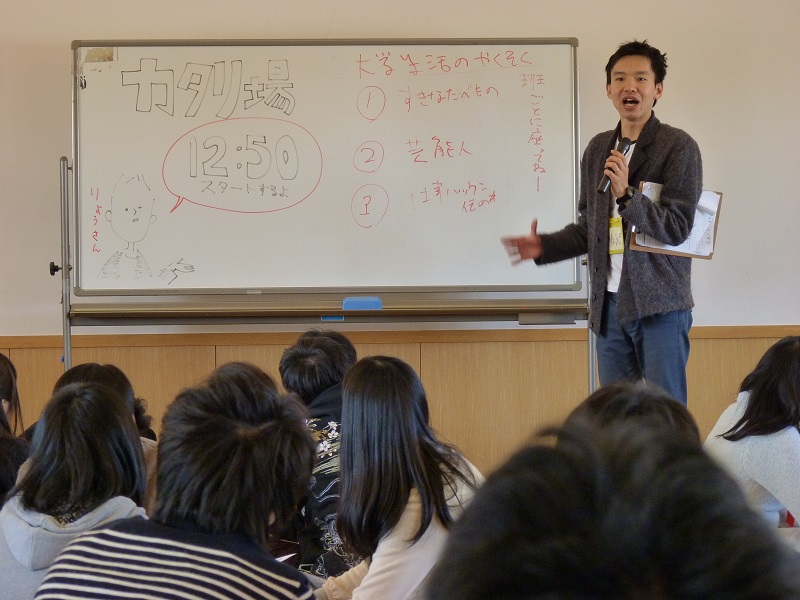 カタリ場
12:50
スタートするよ
りょうさん
大学生活のやくそく
① すきなたべもの
② 芸能人
③
班ごとに座ってねー